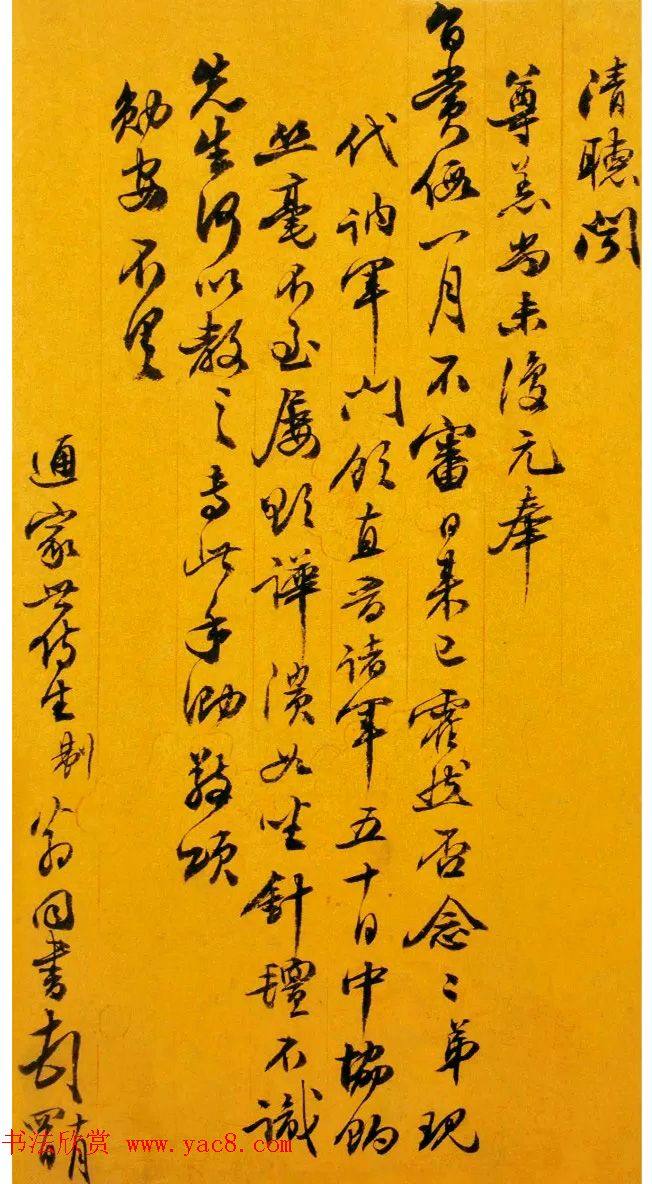 清聽聞
尊恙尚未復元奉
旨賞假一月不審日来已霍然否念〻弟現
代訥軍門領直晉諸軍五十日中協餉
丝毫不至屢欲譁潰如坐針氊不識
先生何以教之专此手泐敬頌
勋安不具
通家世侍生制翁同書頓首
书法欣赏 www.yac8.com